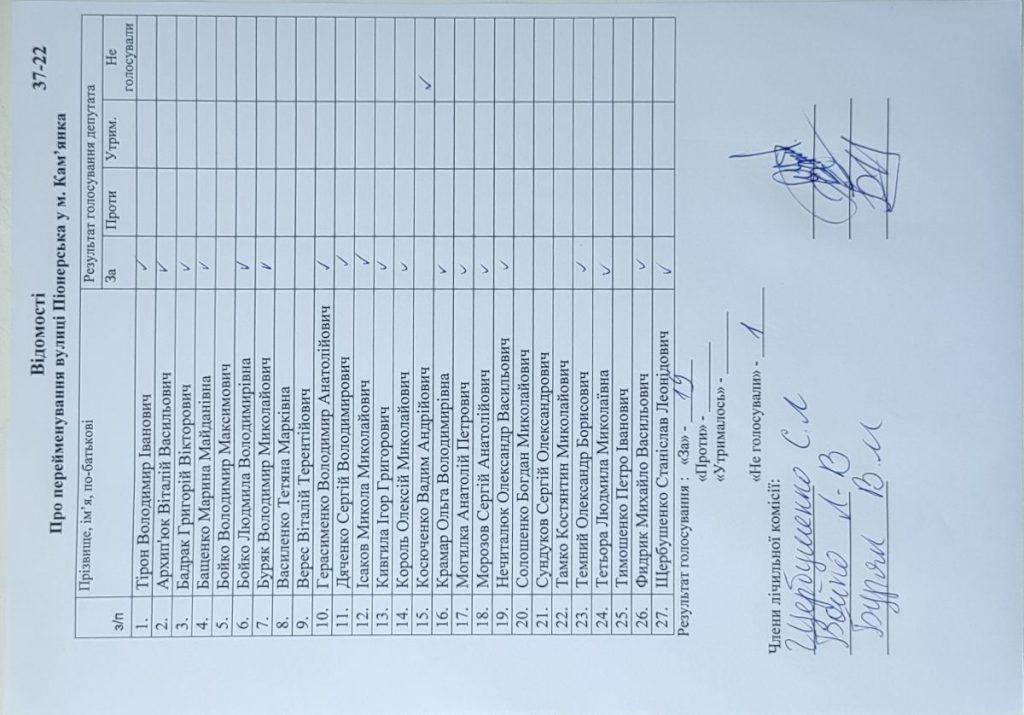 Відомості 37-22
Про перейменування вулиці Піонерська у м. Кам’янка
з/п Прізвище, ім’я, по-батькові Результат голосування депутата
За Проти Утрим. Не голосували
1. Тірон Володимир Іванович ✓
2. Архип'юк Віталій Васильович ✓
3. Бадрак Григорій Вікторович ✓
4. Бащенко Марина Майданівна ✓
5. Бойко Володимир Максимович
6. Бойко Людмила Володимирівна ✓
7. Буряк Володимир Миколайович ✓
8. Василенко Тетяна Марківна
9. Верес Віталій Терентійович
10. Герасименко Володимир Анатолійович ✓
11. Дяченко Сергій Володимирович ✓
12. Ісаков Микола Миколайович ✓
13. Кивгила Ігор Григорович ✓
14. Король Олексій Миколайович ✓
15. Косюченко Вадим Андрійович ✓
16. Крамар Ольга Володимирівна ✓
17. Могилка Анатолій Петрович ✓
18. Морозов Сергій Анатолійович ✓
19. Нечиталюк Олександр Васильович ✓
20. Солошенко Богдан Миколайович
21. Сундуков Сергій Олександрович
22. Тамко Костянтин Миколайович
23. Темний Олександр Борисович ✓
24. Тетьора Людмила Миколаївна ✓
25. Тимошенко Петро Іванович
26. Фидрик Михайло Васильович ✓
27. Щербушенко Станіслав Леонідович ✓
Результат голосування : «За» - 19
«Проти» -
«Утрималось» -
«Не голосували» - 1
Члени лічильної комісії:
Щербушенко С.Л
Бойко Л.В
Буряк В.М